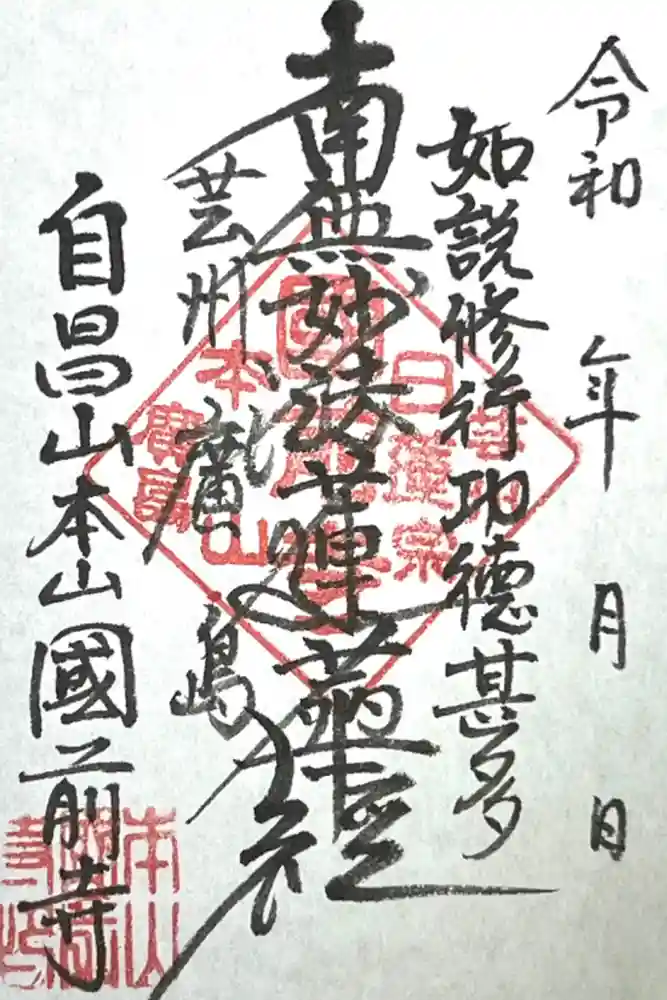 令和 年 月 日
如説修行功徳甚多
南無妙法蓮華経
芸州
廣島
自昌山本山國前寺
日蓮宗
本山
廣島